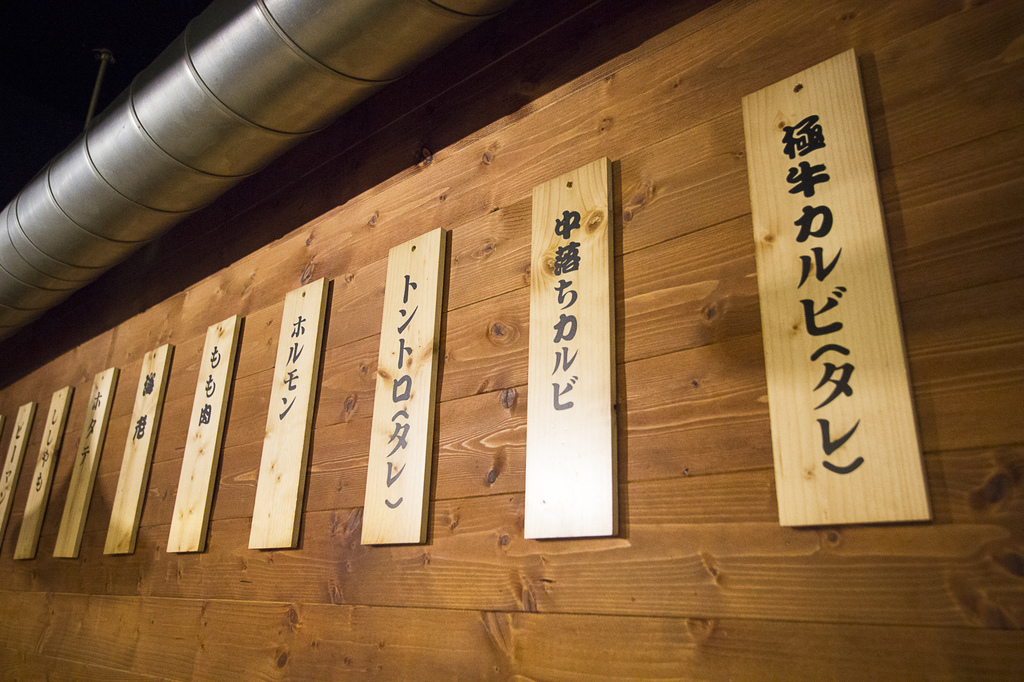 極牛カルビ(タレ)
中落ちカルビ
トントロ(タレ)
ホルモン
もも肉
海老
ホタテ
ししゃも
ピーマン